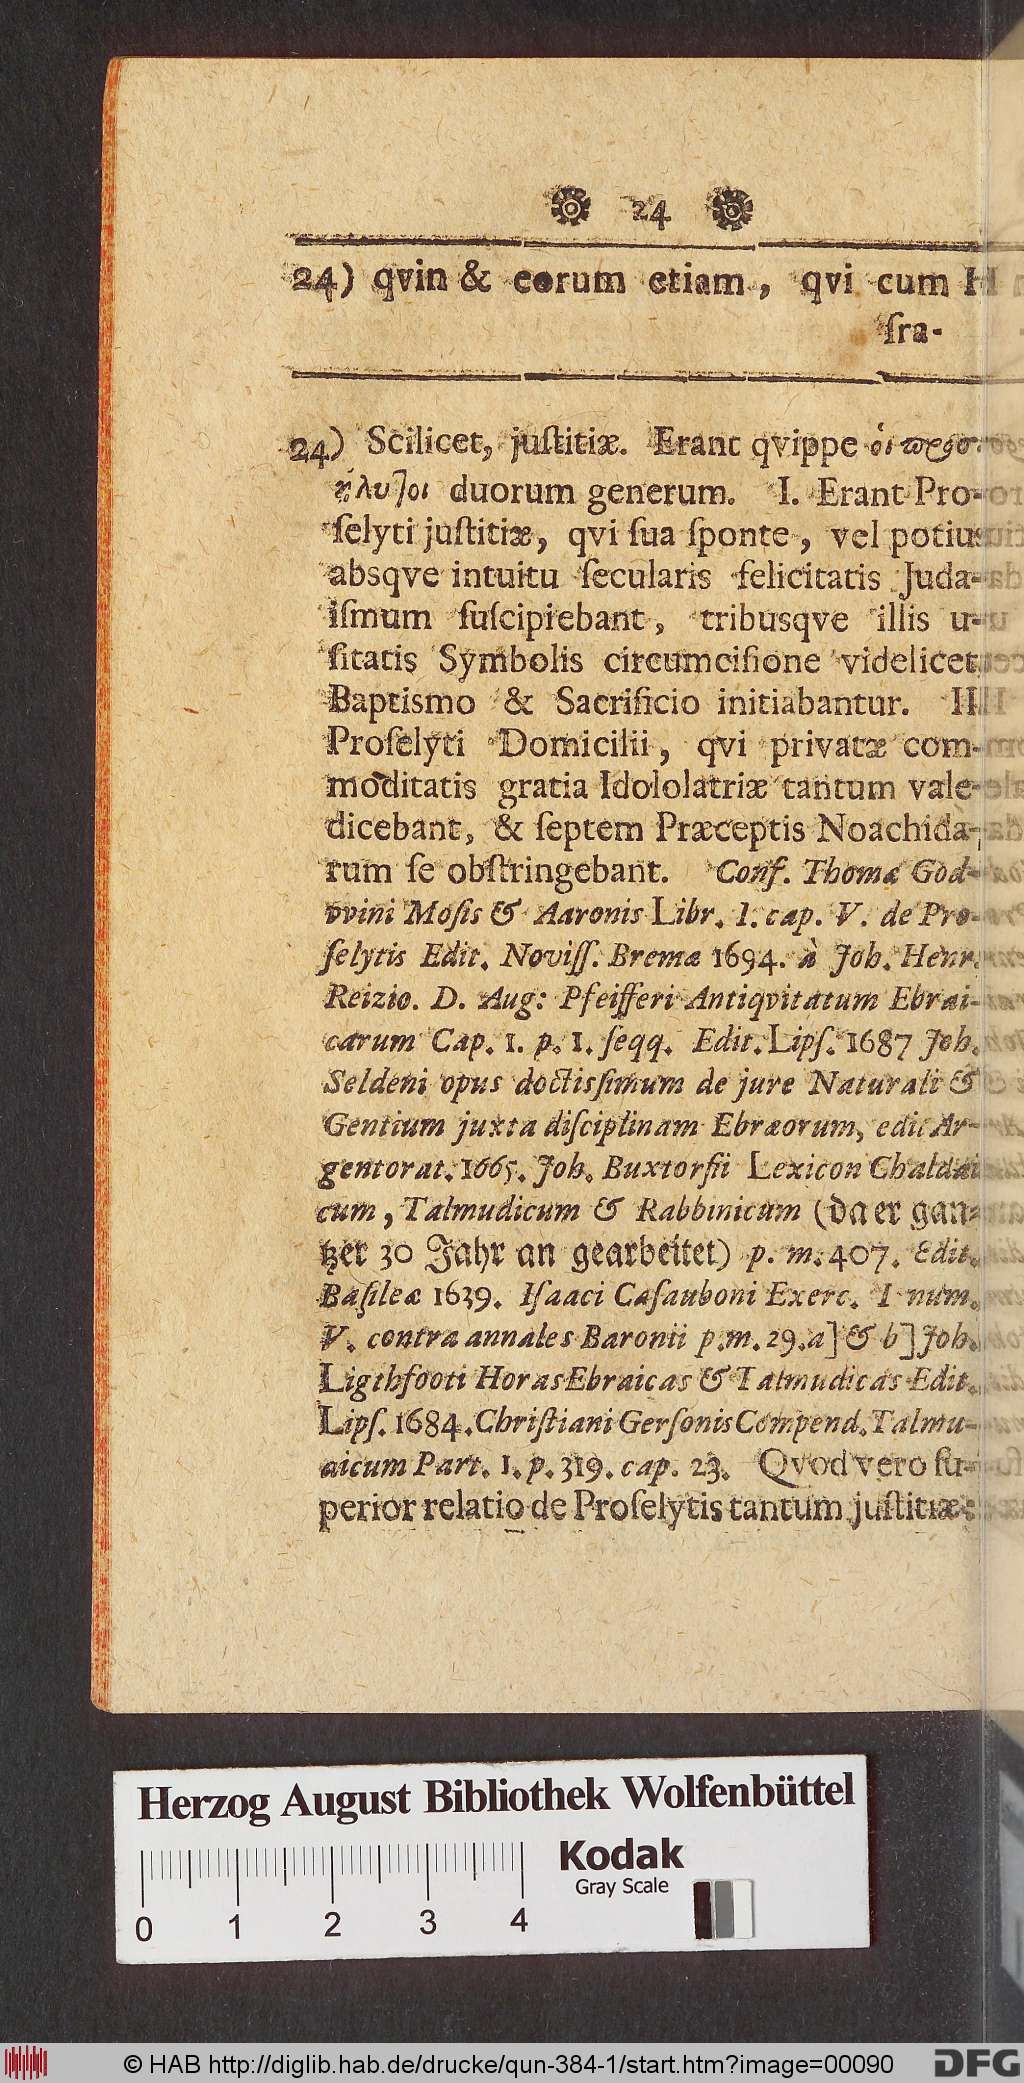 24
24) qvin & eorum etiam, qvi cum
ſra-
24) Scilicet, juſtitiæ. Erant qvippe ὁι προσ-
ήλυτοι duorum generum. I. Erant Pro-
ſelyti juſtitiæ, qvi ſua ſponte, vel potius
absqve intuitu ſecularis felicitatis Juda-
iſmum ſuſcipiebant, tribusqve illis u-
ſitatis Symbolis circumciſione videlicet,
Baptismo & Sacrificio initiabantur. II
Proſelyti Domicilii, qvi privatæ com-
moditatis gratia Idololatriæ tantum vale-
dicebant, & ſeptem Præceptis Noachida-
rum ſe obſtringebant. Conf. Thomæ God-
vvini Moſis & Aaronis Libr. 1. cap. V. de Pro-
ſelytis Edit. Noviſſ. Bremæ 1694. à Joh. Henr.
Reizio. D. Aug: Pfeifferi Antiqvitatum Ebrai-
carum Cap. 1. p. 1. ſeqq. Edit. Lipſ. 1687 Joh.
Seldeni opus doctisſimum de jure Naturali &
Gentium juxta diſciplinam Ebræorum, edit Ar-
gentorat. 1665. Joh. Buxtorfii Lexicon Chaldai
cum, Talmudicum & Rabbinicum (da er gan-
tzer 30 Jahr an gearbeitet) p. m. 407. Edit.
Baſileæ 1639. Iſaaci Caſauboni Exerc. I num.
V. contra annales Baronii p. m. 29. a] & b] Joh.
Ligthfooti Horas Ebraicas & Talmudicas Edit.
Lipſ. 1684. Chriſtiani Gerſonis Compend. Talmu-
dicum Part. 1. p. 319. cap. 23. Qvod vero ſu-
perior relatio de Proſelytis tantum juſtitiæ
Herzog August Bibliothek Wolfenbüttel
Kodak
Gray Scale
0 1 2 3 4
© HAB http://diglib.hab.de/drucke/qun-384-1/start.htm?image=00090
DFG